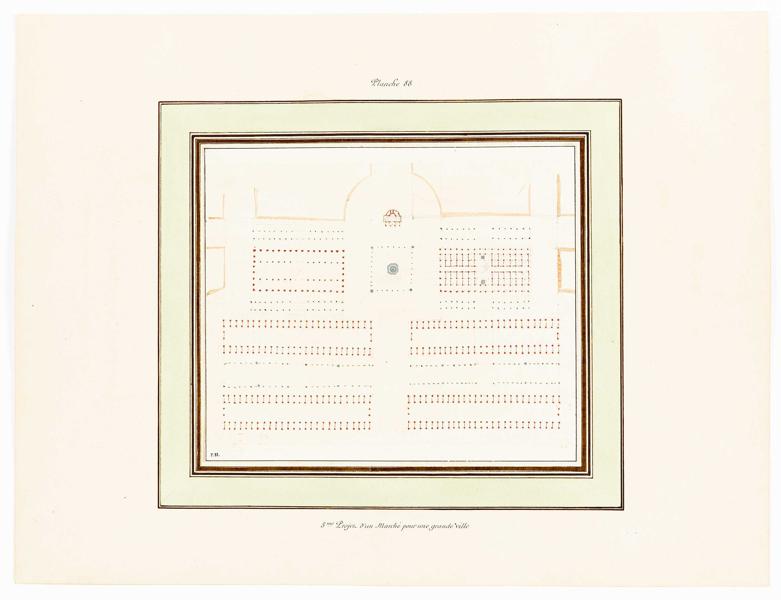 Planche 88
T.H.
5me Projet d'un Marché pour une grande Ville